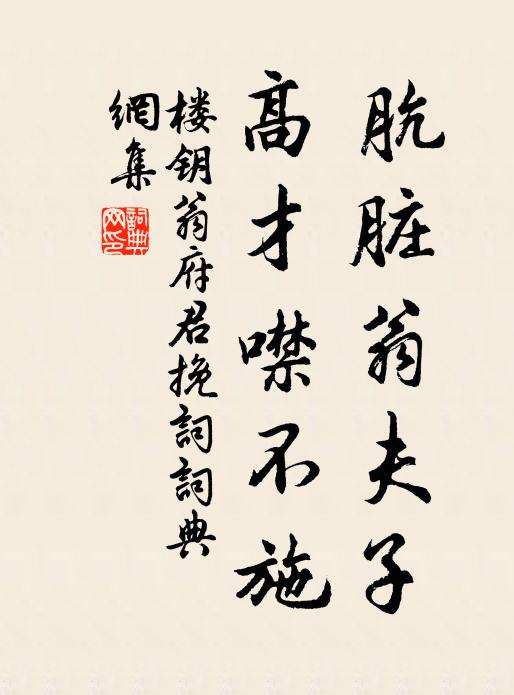 肮脏翁夫子
高才噤不施
楼钥翁府君挽詞詞典
網集
詞典网印